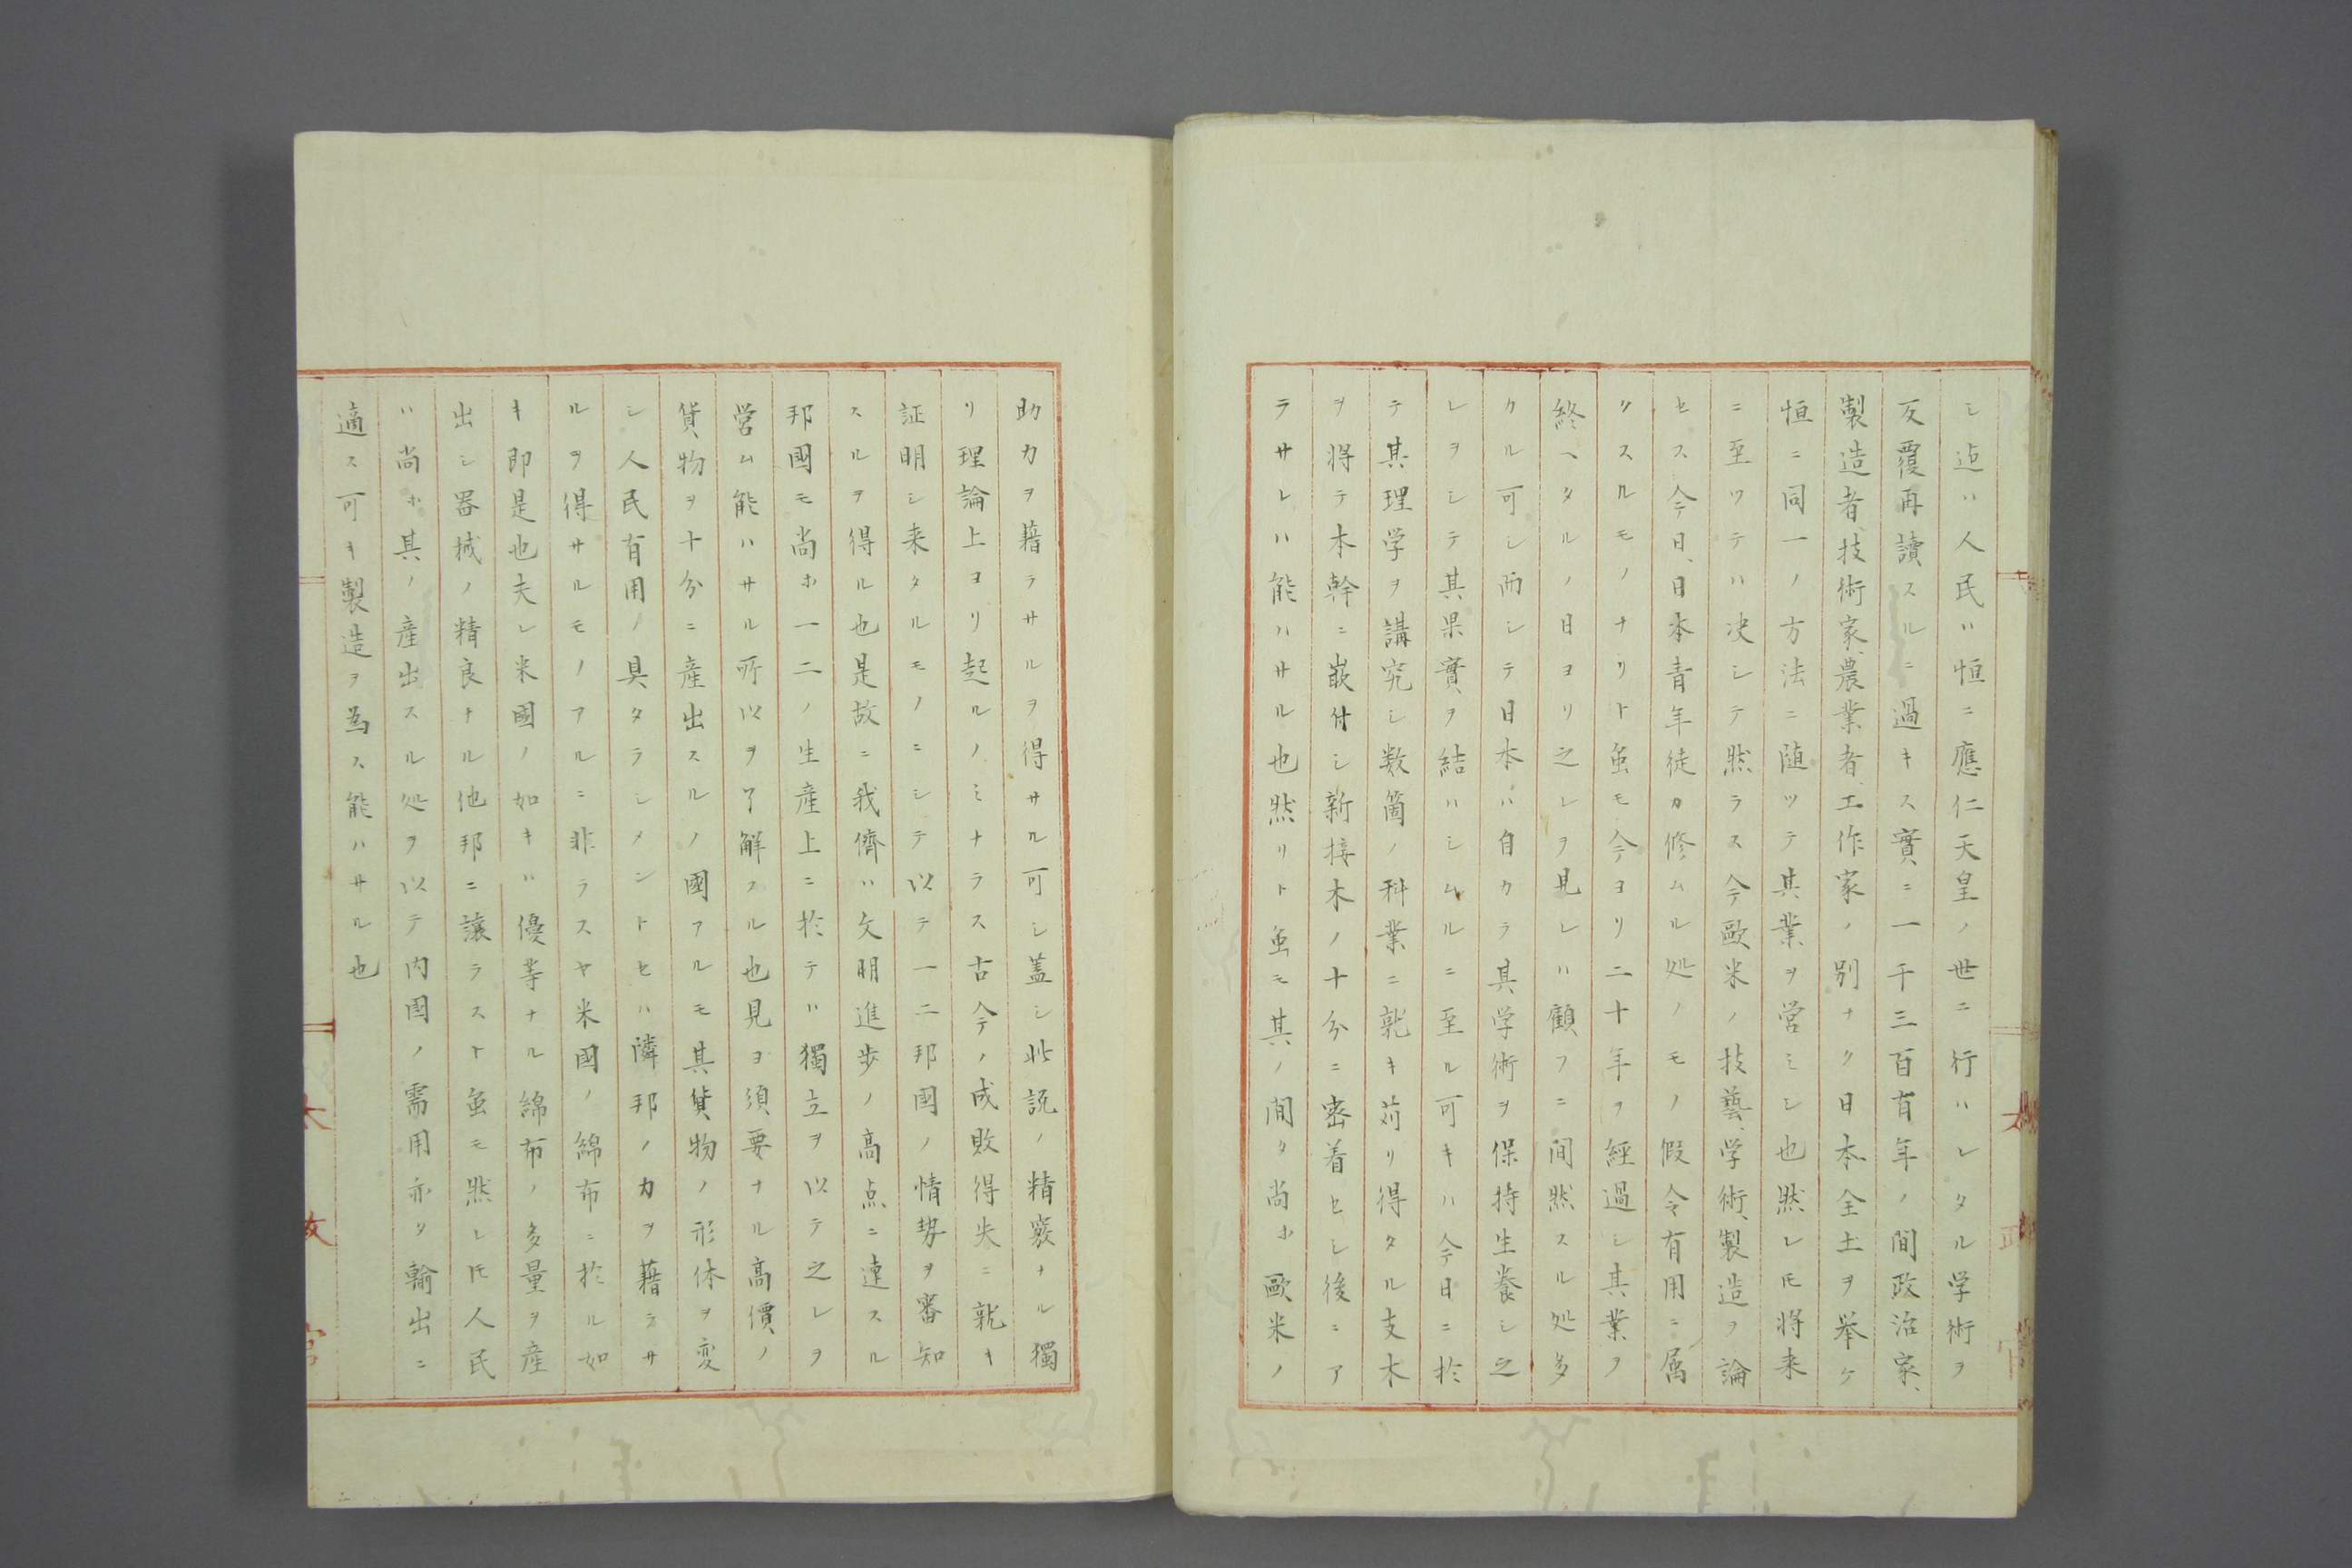 シ迠ハ人民ハ恒ニ應仁天皇ノ世ニ行ハレタル学術ヲ
反覆再讀スルニ過キス實ニ一千三百有年ノ間政治家、
製造者、技術家、農業者、工作家ノ別ナク日本全土ヲ挙ケ
恒ニ同一ノ方法ニ随ツテ其業ヲ営ミシ也然レ𪜈将来
ニ至ツテハ决シテ然ラス今歐米ノ技藝、学術、製造ヲ論
セス今日、日本青年徒カ修ムル処ノモノ假令有用ニ属
クスルモノナリト虽モ今ヨリ二十年ヲ経過シ其業ヲ
終ヘタルノ日ヨリ之レヲ見レハ顧フニ间然スル処多
カル可シ而シテ日本ハ自カラ其学術ヲ保持生養シ之
レヲシテ其果實ヲ結ハシムルニ至ル可キハ今日ニ於
テ其理学ヲ講究シ数箇ノ科業ニ就キ苅リ得タル支木
ヲ将テ木幹ニ嵌付シ新接木ノ十分ニ密着セシ後ニア
ラサレハ能ハサル也然リト虽モ其ノ間タ尚ホ歐米ノ
助力ヲ藉ラサルヲ得サル可シ蓋シ此説ノ精竅ナル獨
リ理論上ヨリ起ルノミナラス古今ノ成敗得失ニ就キ
証明シ来タルモノニシテ以テ一二邦國ノ情勢ヲ審知
スルヲ得ル也是故ニ我儕ハ文明進歩ノ高点ニ達スル
邦國モ尚ホ一二ノ生産上ニ於テハ獨立ヲ以テ之レヲ
営ム能ハサル所以ヲ了解スル也見ヨ須要ナル高價ノ
貨物ヲ十分ニ産出スルノ國アルモ其貨物ノ形体ヲ変
シ人民有用ノ具タラシメントセハ隣邦ノ力ヲ藉ラサ
ルヲ得サルモノアルニ非ラスヤ米國ノ綿布ニ於ル如
キ即是也夫レ米國ノ如キハ優等ナル綿布ノ多量ヲ産
出シ器械ノ精良ナル他邦ニ讓ラスト虽モ然レ𪜈人民
ハ尚ホ其ノ産出スル処ヲ以テ内国ノ需用亦タ輸出ニ
適ス可キ製造ヲ為ス能ハサル也
太政官